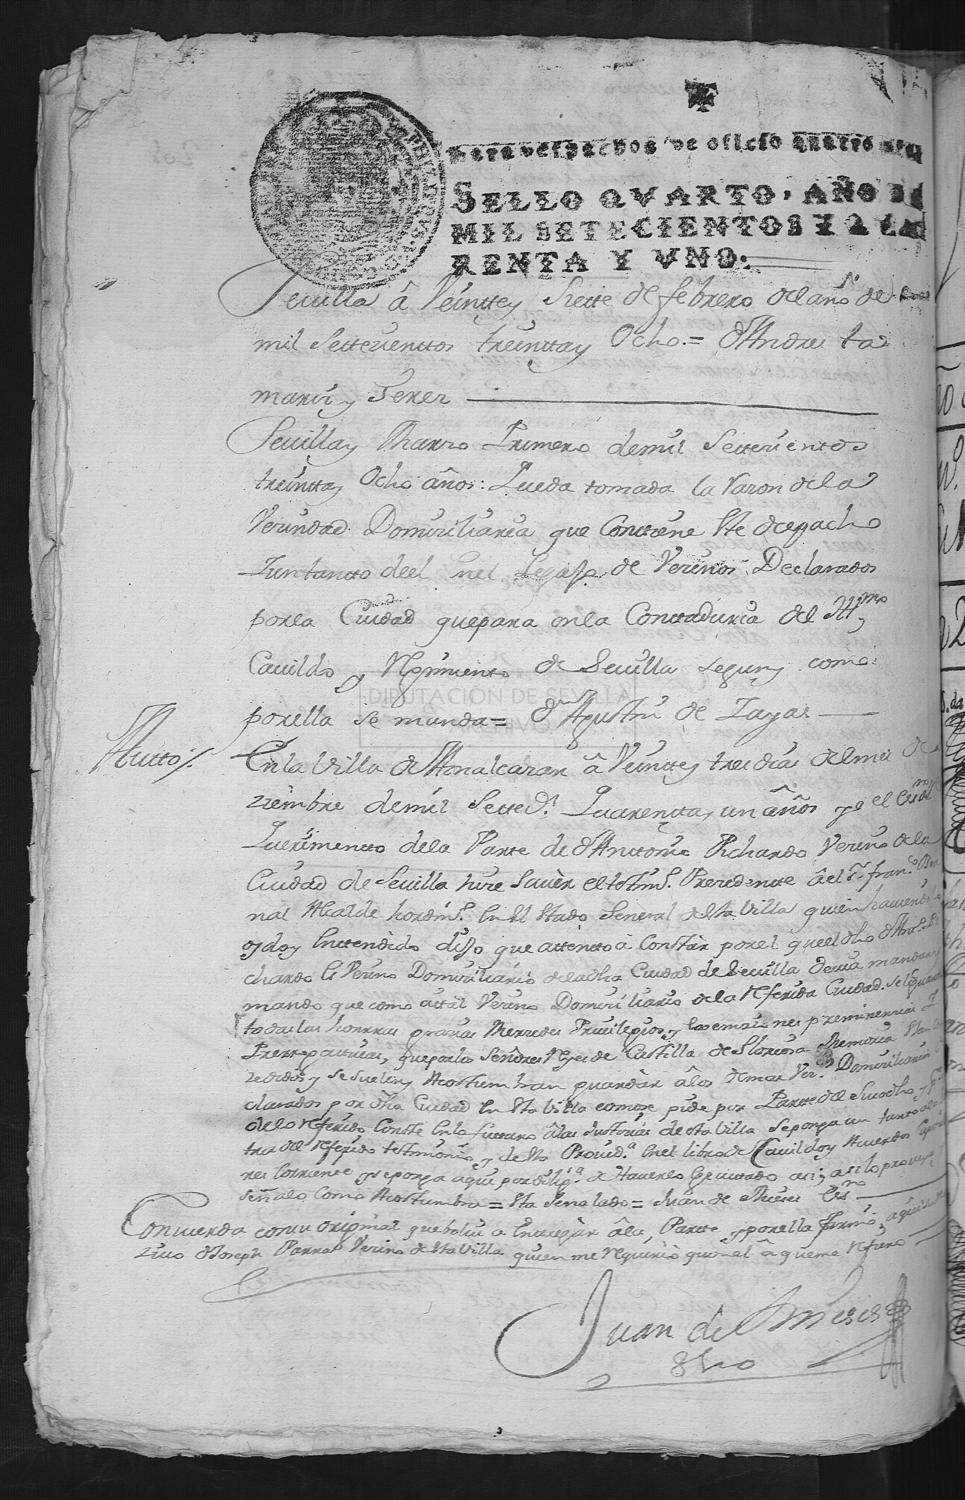 Para despachos de oficio quatro mrs
SELLO QVARTO, AÑO DE
MIL SETECIENTOS Y QVA
RENTA Y VNO.
Sevilla â Veintte y Siette de febrero del año de
mil Settecienttos treintta y Ocho = Dn Andres ta
mariz y Jerez
Sevilla y Marzo Primero de mil Settecientos
treintta y Ocho años: Queda tomada la razon de la
Vecindad Domiciliaria que Contiene Este despacho
Juntamto deel en el Legajo de Vecinos Declarados
por la Ciudad que para en la Contaduria del Illmo
Cavildo y Regimiento de Sevilla segun y como
por ella se manda = Dn Agustin de Zayas
DIPUTACIÓN DE SEVILLA
Autto
En la Villa de Aznalcazar â Veintte y tres dias del mes de
ziembre de mil Settecs. quarentta y un años yo el Essno de
querimiento de la Parte de Dn Anttonio Pichardo Vecino de la
Ciudad de Sevilla hice Saver el testimo. Precedente â el Sr. Franco. Ber
nal Alcalde hordino. en el Estado General de esta Villa quien haviendo
oydo y Enttendido dijo que attento â Constar por el que el dho Dn Anto. Pi
chardo es Vecino Domiciliario de la dha Ciudad de Sevilla devia mandar y
mando que como a tal Vecino Domiciliario de la Referida Ciudad se le guarden
todas las honrras gracias Mercedes Privilegios y Exsempciones preminencias
Prerrogativas, que por los Señores Reyes de Castilla de Gloriosa Memoria
zedidos y se suelen y Acostumbran guardar â los demas Vecs. Domiciliarios
clarados por dha Ciudad En esta Villa como se pide por Partte del Susodho y
de lo Referido Conste en lo futturo â las Justicias de esta Villa se ponga un tanto
tra del Referido testimonio y de esta Provida. en el libro de Cavildo y Acuerdos
res Corriente y se ponga aqui por diliga. de Haverlo Executado asi; asi lo proveyo
Señalo Como Acostumbra = Esta Señalado = Juan de Essno
Concuerda con su original que bolvi a Entregar â la Partte y por ella firmo, a quien
zivo Dn Joseph Parra Vecino de esta Villa quien me Requirio
Juan de
Essno